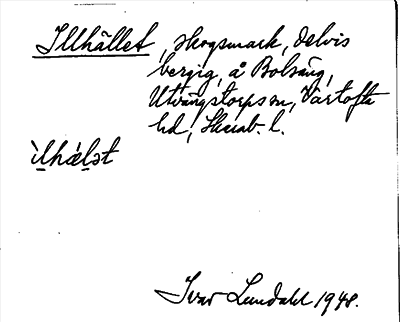 Illhället, skogsmark, delvis
bergig, å Bolsäng,
Utvängstorps sn, Vartofta
hd, Skarab. l.
ìlhæ̀lət
Ivar Lundahl 1948.